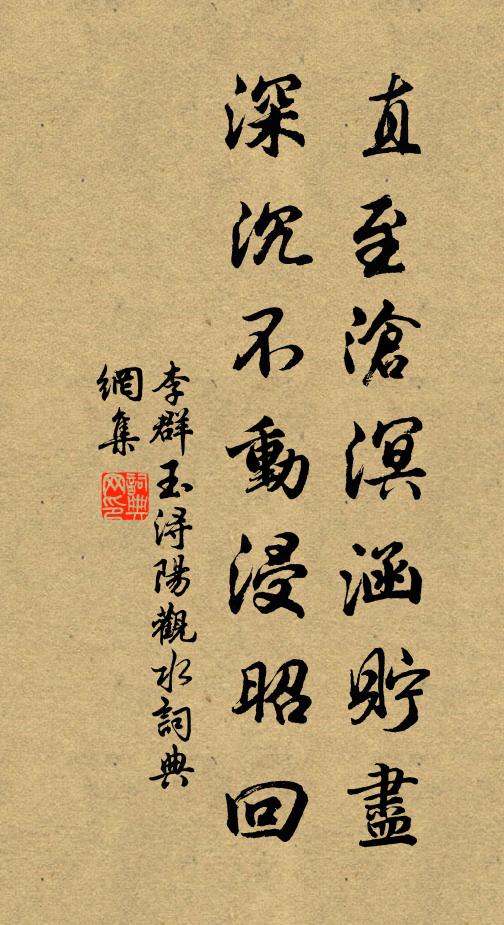 直至滄溟涵貯盡
深沉不動浸昭回
李群玉潯陽觀水詞典
網集
詞典網印